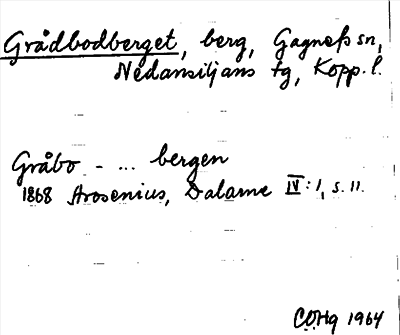 Grådbodberget, berg, Gagnefs sn,
Nedansiljans tg, Kopp. l.
Gråbo - ... bergen
1868 Arosenius, Dalarne IV: 1, s. 11.
COHg 1964